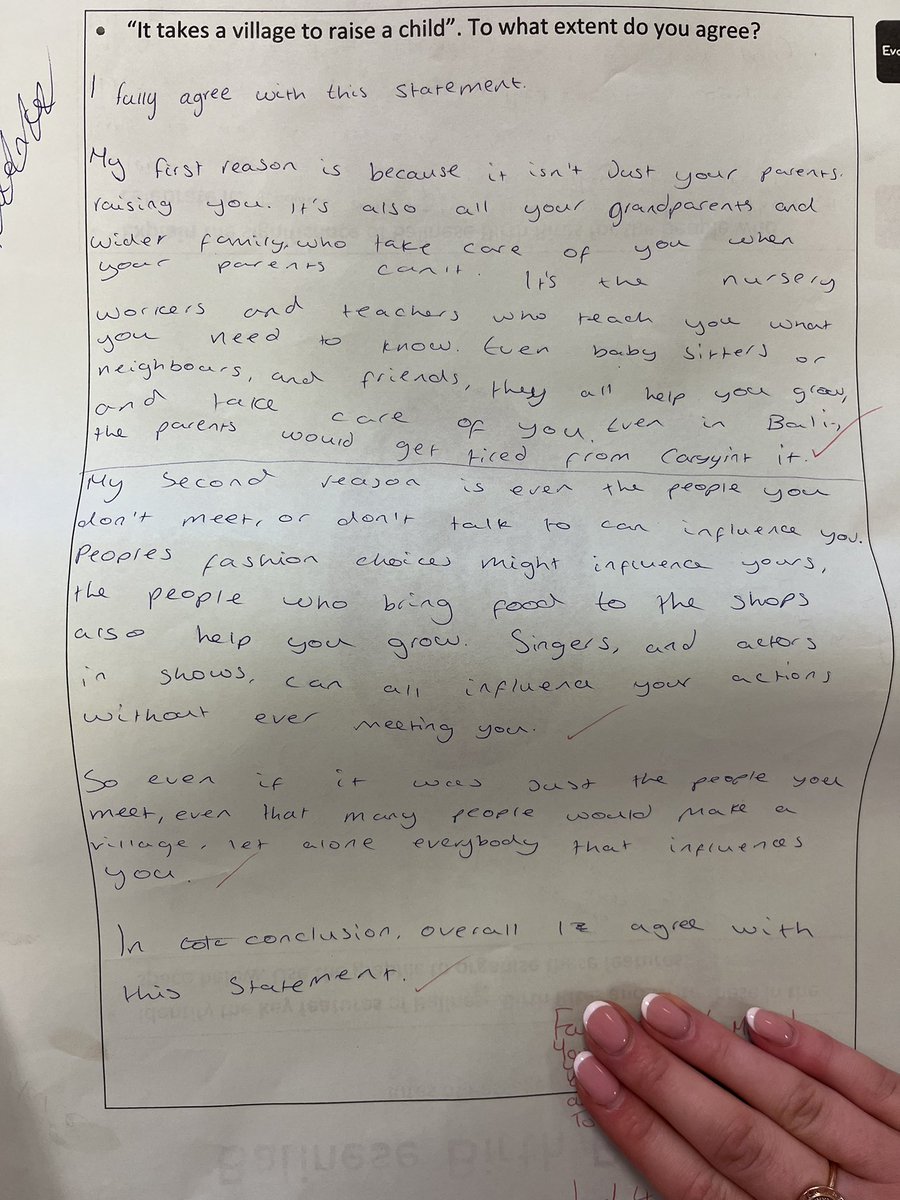 • “It takes a village to raise a child”. To what extent do you agree?
I fully agree with this statement.
My first reason is because it isn't Just your parents
raising you. It's also all your grandparents and
wider family, who take care of you when
your parents can't. It's the nursery
workers and teachers who teach you what
you need to know. Even baby sitters or
neighbours, and friends, they all help you grow,
and take care of you. Even in Bali,
the parents would get tired from it.
My Second reason is even the people you
don't meet, or don't talk to can influence you.
Peoples fashion choices might influence yours,
the people who bring food to the shops
also help you grow. Singers, and actors
in shows, can all influence your actions
without ever meeting you.
So even if it was Just the people you
meet, even that many people would make a
village, let alone everybody that influences
you.
In conclusion, overall I agree with
this Statement.
Balinese Birth